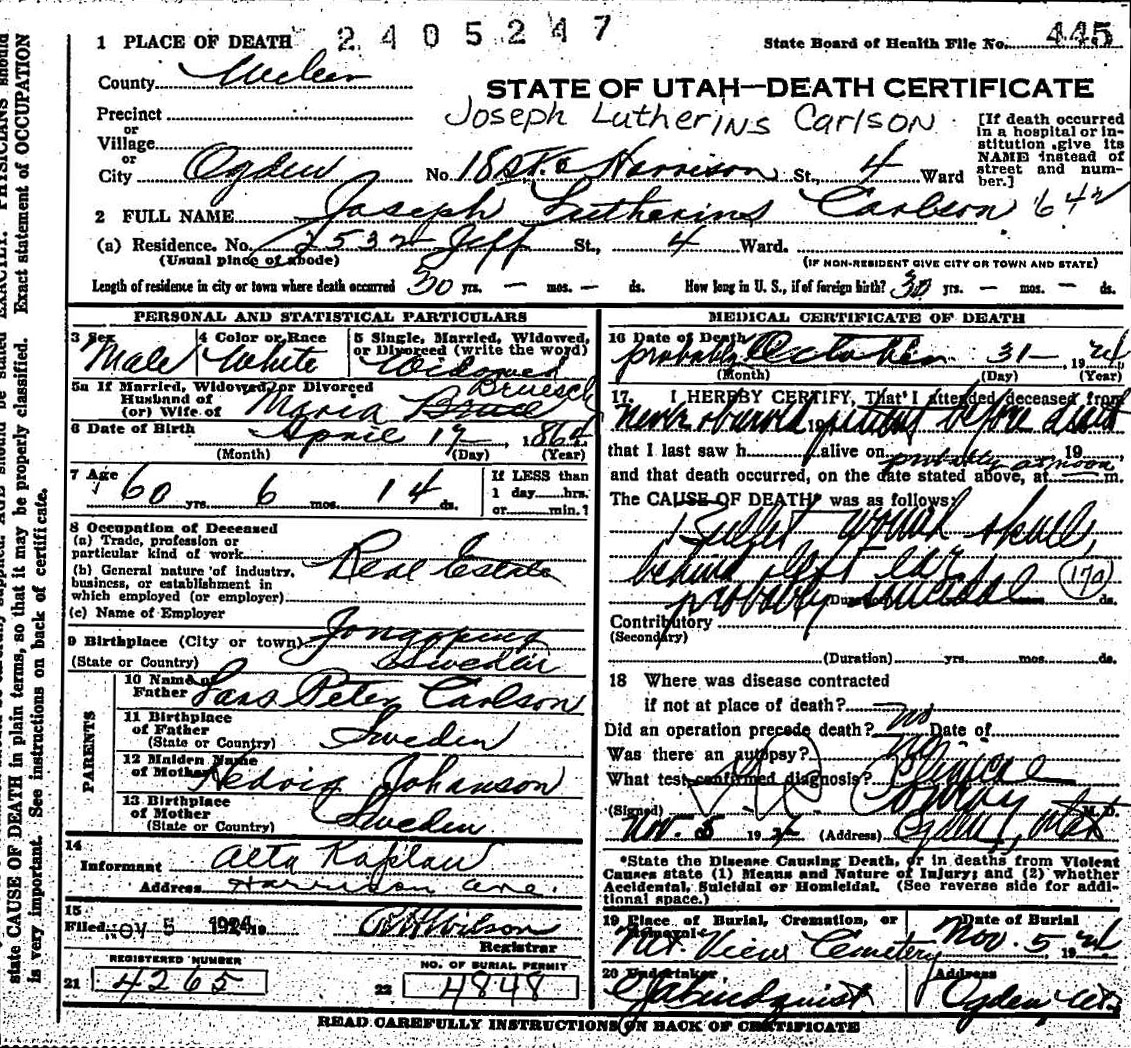 state CAUSE OF DEATH in plain terms, so that it may be properly classified. Exact statement of OCCUPATION
is very important. See instructions on back of certificate.
2405247
1 PLACE OF DEATH
State Board of Health File No. 445
County Weber
STATE OF UTAH—DEATH CERTIFICATE
Precinct
or
Village
or
Joseph Lutherins Carlson
[If death occurred
in a hospital or in-
stitution give its
NAME instead of
street and num-
ber.]
City Ogden No. 18 St. & Harrison St., 4 Ward
2 FULL NAME Joseph Lutherins Carlson 642
(a) Residence. No. 2532 Jeff St., 4 Ward.
(Usual place of abode) (IF NON-RESIDENT GIVE CITY OR TOWN AND STATE)
Length of residence in city or town where death occurred 30 yrs. — mos. — ds. How long in U. S., if of foreign birth? 30 yrs. — mos. — ds.
PERSONAL AND STATISTICAL PARTICULARS
3 Sex 4 Color or Race 5 Single, Married, Widowed,
or Divorced (write the word)
Male White Widowed
5a If Married, Widowed, or Divorced Bruesch
Husband of
(or) Wife of Maria Bruce
6 Date of Birth April 17, 1864
(Month) (Day) (Year)
7 Age 60 yrs. 6 mos. 14 ds.
If LESS than
1 day......hrs.
or......min.?
8 Occupation of Deceased
(a) Trade, profession or
particular kind of work Real Estate
(b) General nature of industry,
business, or establishment in
which employed (or employer)
(c) Name of Employer
9 Birthplace (City or town) Jongoping
(State or Country) Sweden
PARENTS
10 Name of
Father Lars Peter Carlson
11 Birthplace
of Father
(State or Country) Sweden
12 Maiden Name
of Mother Hedvig Johanson
13 Birthplace
of Mother
(State or Country) Sweden
14
Informant Alta Kaplan
Address Harrison ave.
15
Filed Nov 5 1924 19
Wilson
Registrar
REGISTERED NUMBER
21 4265
NO. OF BURIAL PERMIT
22 4848
MEDICAL CERTIFICATE OF DEATH
16 Date of Death
probably October 31 1924
(Month) (Day) (Year)
17. I HEREBY CERTIFY, That I attended deceased from
never observed patient before death
19
that I last saw h alive on 19
probably at noon
and that death occurred, on the date stated above, at m.
The CAUSE OF DEATH* was as follows:
Bullet wound skull,
behind left ear, 170
probably suicidal
(Duration) ds.
Contributory
(Secondary)
(Duration) yrs. mos. ds.
18 Where was disease contracted
if not at place of death?
Did an operation precede death? no Date of
Was there an autopsy? no
What test confirmed diagnosis? Clinical
(Signed) M. D.
Nov. 5 1924 (Address) Ogden, Utah
*State the Disease Causing Death, or in deaths from Violent
Causes state (1) Means and Nature of Injury; and (2) whether
Accidental, Suicidal or Homicidal. (See reverse side for addi-
tional space.)
19 Place of Burial, Cremation, or
Removal Date of Burial
Mt. View Cemetery Nov. 5 1924
20 Undertaker Address
Lindquist Ogden, Ut.
READ CAREFULLY INSTRUCTIONS ON BACK OF CERTIFICATE